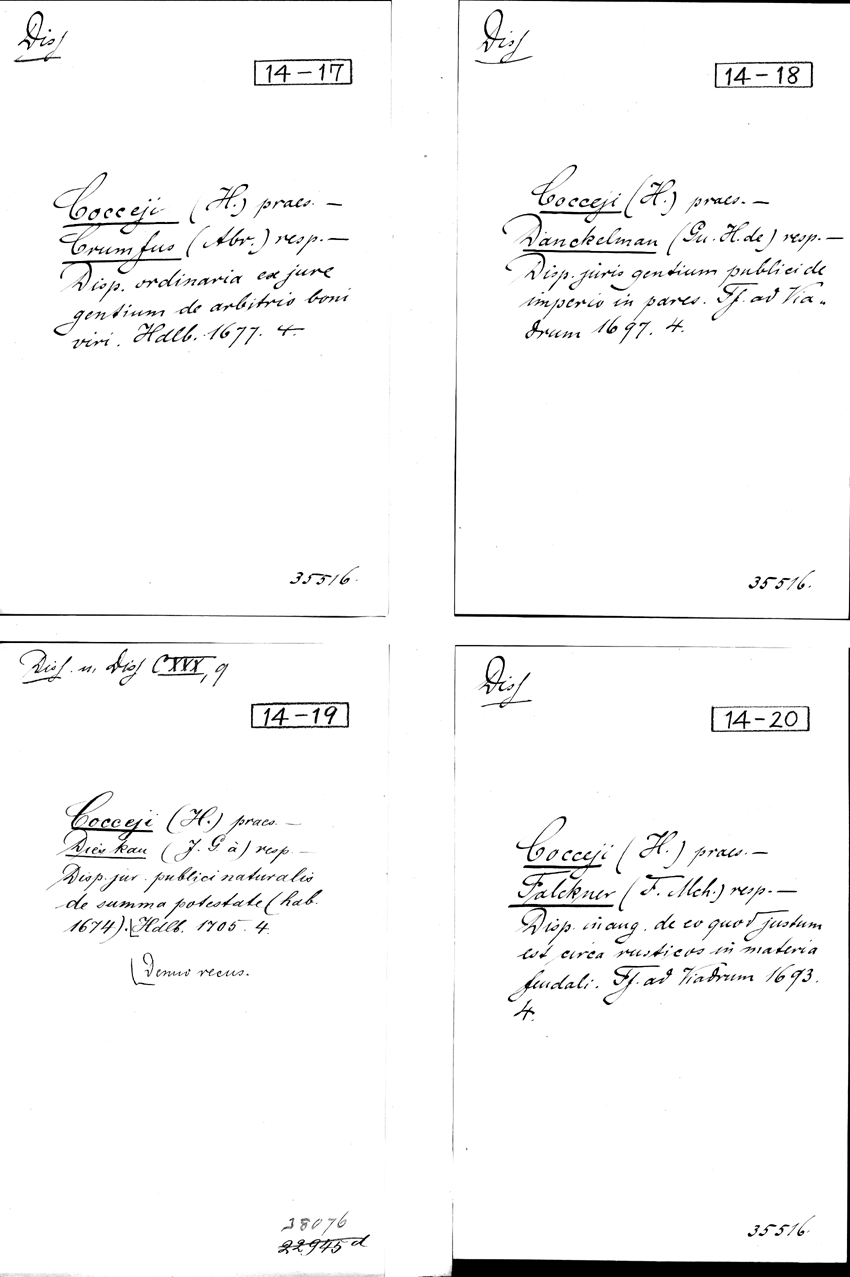 Diss
14-17
Cocceji (H.) praes. —
Crumfus (Abr.) resp. —
Disp. ordinaria ex jure
gentium de arbitrio boni
viri. Hdlb. 1677. 4.
35516.
Diss
14-18
Cocceji (H.) praes. —
Danckelman (Gu. H. de) resp. —
Disp. juris gentium publici de
imperio in pares. Ff. ad Via-
drum 1697. 4.
35516.
Diss. u. Diss CXXX, 9
14-19
Cocceji (H.) praes. —
Dieskau (J. G. à) resp. —
Disp. jur. publici naturalis
de summa potestate (hab.
1674). Hdlb. 1705. 4.
Denuo recus.
38076
22945d
Diss
14-20
Cocceji (H.) praes. —
Falckner (F. Mch.) resp. —
Disp. inaug. de eo quod justum
est circa rusticos in materia
feudali. Ff. ad Viadrum 1693.
4.
35516.